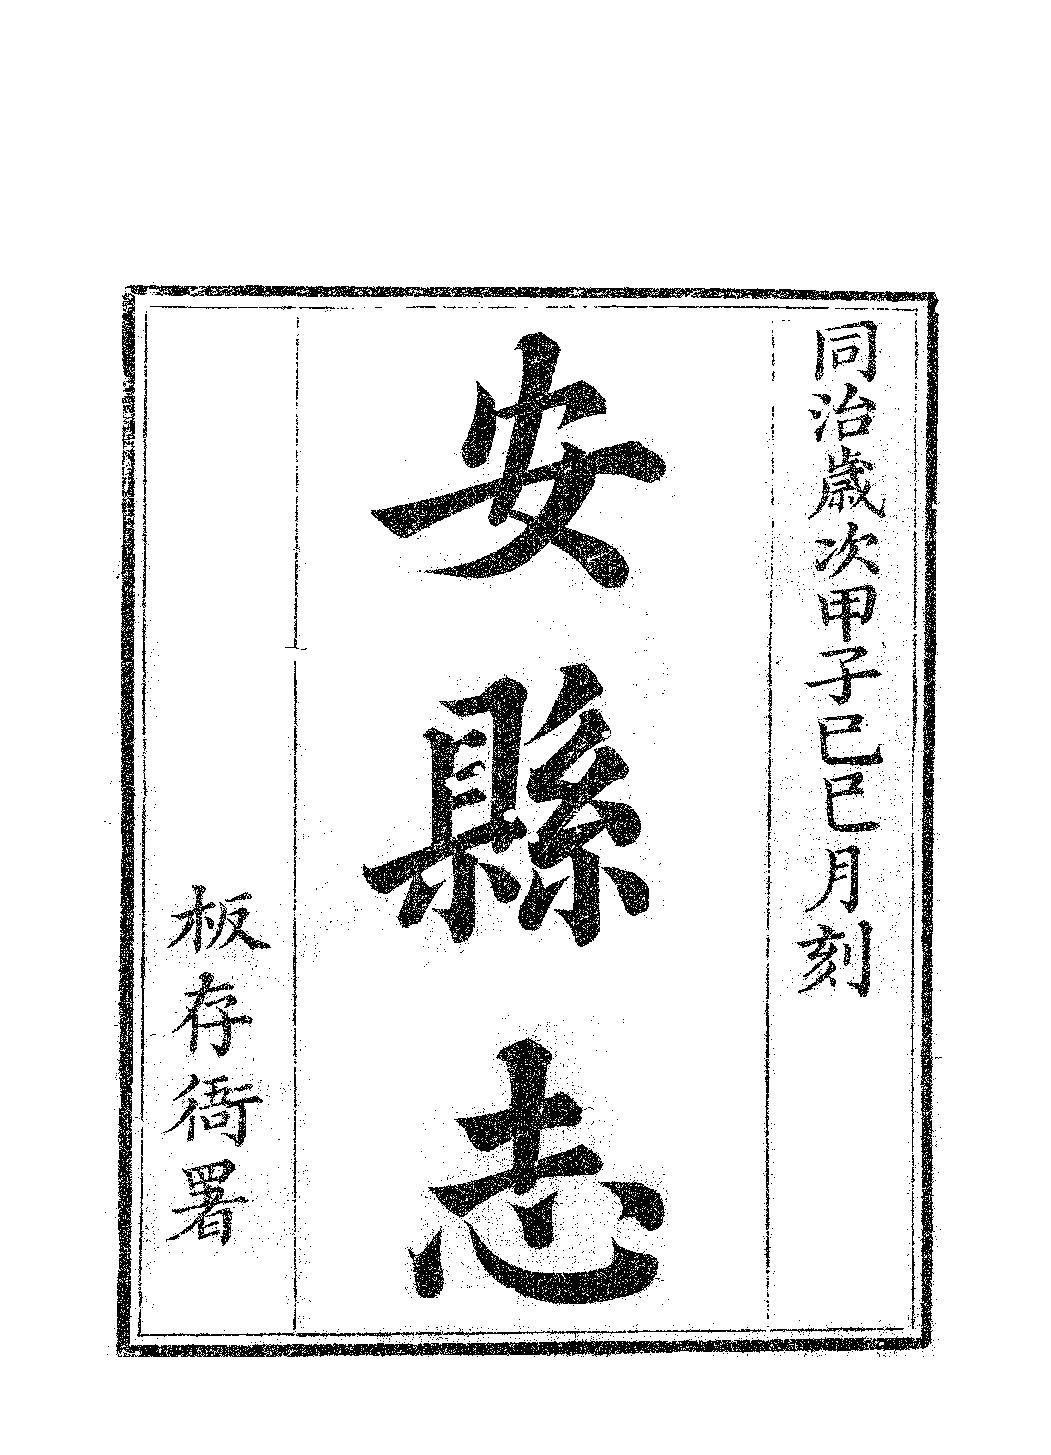 同治歲次甲子巳巳月刻
安縣志
板存衙署